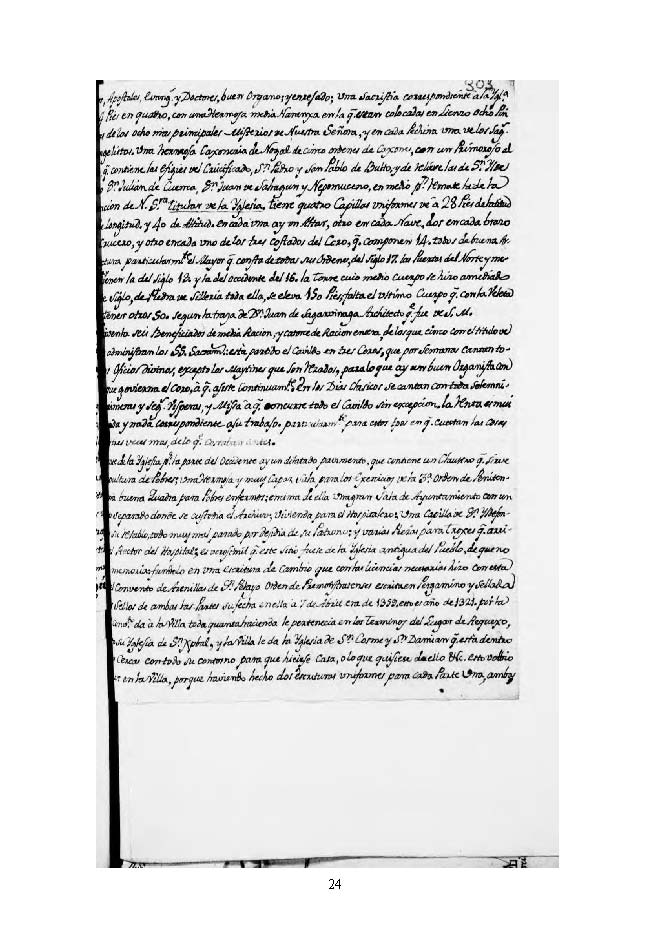 303
Apostoles, Evang.s y Doctores, buen Organo; y enrejado; Una Sacristia correspondiente a la Ygl.ª
Pies en quatro, con una Hermosa media Naranxa en la q.e estan colocadas en Lienzo ocho Pin
de los ocho mas principales Misterios de Nuestra Señora, y en cada Pechina uno de los Sag.s
gelistas. Una hermosa Caxoncaia de Nogal de cinco ordenes de Caxones, con un Primoroso al
q. contiene las efigies del Crucificado, S.n Pedro y San Pablo de Bulto, y de relieve las de S.n Ylde
S.n Julián de Cuenca, S.n Juan de Sahagun y Nepomuceno, en medio p.r Remate la de la
cion de N. S.ra Titular de la Yglesia, tiene quatro Capillas uniformes de a 28 Pies de latitud
longitud, y 40 de Altitud. en cada una ay un Altar, otro en cada Nave, dos en cada brazo
Crucero, y otro en cada uno de los tres costados del Coro, q. componen 14. todos de buena Ar
ctura particularm.te el Mayor q. consta de todas sus Ordenes, del Siglo 17. las Puertas del Norte y me
tienen la del Siglo 13. y la del Occidente del 16. la Torre cuio medio Cuerpo se hizo a mediado
Siglo, de Piedra de Silleria toda ella, se eleva 150 Pies, falta el ultimo Cuerpo q. con la Veleta
tener otros 50. segun la traza de D.n Juan de Sagarvinaga Architecto q.e fue de S. M.
Seis Beneficiados de media Racion, y catorce de Racion entera, de los que cinco con el titulo de
administran los SS. Sacram.tos esta partido el Cavildo en tres Coros, que por Semanas cantan to-
Oficios Divinos, excepto los Maytines que son Rezados, para lo que ay un buen Organista con
que govierna el Coro, a q. asiste Continuam.te En los Dias Clasicos se cantan con toda Solemni-
primeras y Seg.s Vísperas, y Missa a q. concurre todo el Cavildo sin excepcion. la Renta es mui
y nada correspondiente a su trabajo. particularm.te para estos tpos en q. cuestan las cosas
tres veces mas, de lo q. costaban antes.
de la Yglesia p.r la parte del Occidente ay un dilatado pavimento, que contiene un Claustro q. sirve
sepultura de Pobres; una Hermosa y muy Capaz Sala para los Exercicios de la 3.ª Orden de Peniten-
buena Quadra para Pobres enfermos; encima de ella una gran Sala de Ayuntamiento con un
separado donde se custodia el Archivo; Vivienda para el Hospitalero; Una Capilla de S.n Yldefon
todo muy mal parado por desidia de su Patrono; y varias Piezas para Troxes q. arri
Rector del Hospital; es verosimil q. este sitio fuese de la Yglesia antigua del Pueblo, de que no
memoria; fundolo en una Escritura de Cambio que con las licencias necesarias hizo con esta
Convento de Arenillas de S.n Pelayo Orden de Premonstratenses escrita en Pergamino y Sellada
Sellos de ambas las Partes su fecha en ella a 7 de Abril era de 1359, en es año de 1321. por la
da a la Villa toda quanta hacienda le pertenecia en los Terminos del Lugar de Requexo,
su Yglesia de S.n Xptbal, y la Villa le da la Yglesia de S.n Cosme y S.n Damian q. esta dentro
Cercas con todo su contorno para que hiciese Casa, o lo que quisiere de ello &c. esto volbio
en la Villa, porque haviendo hecho dos escrituras uniformes para cada Parte Una, ambas
24